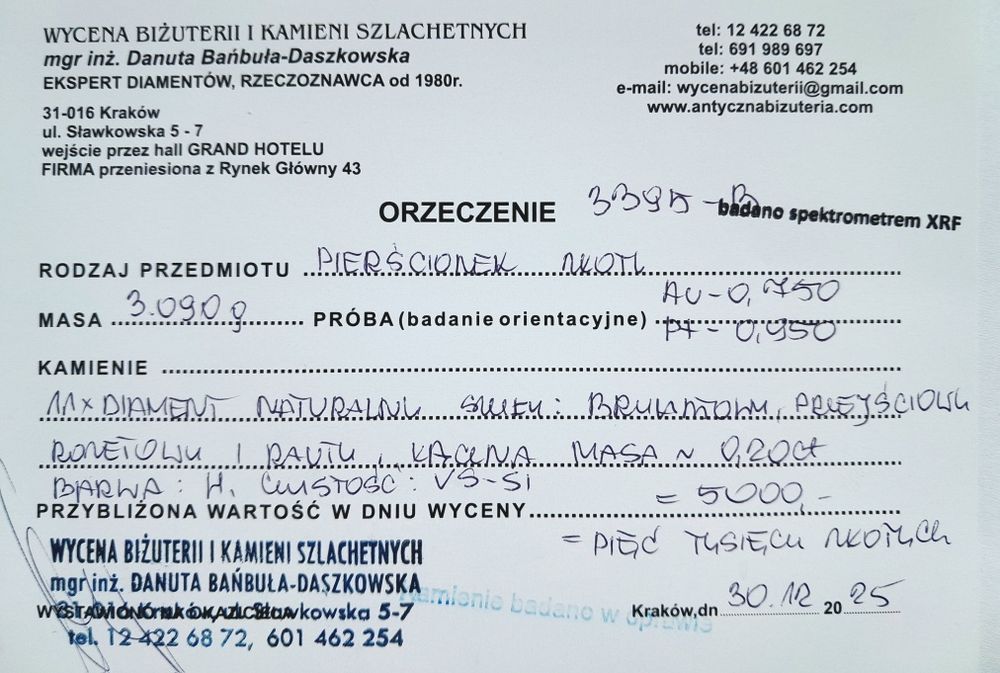 WYCENA BIŻUTERII I KAMIENI SZLACHETNYCH
mgr inż. Danuta Bańbuła-Daszkowska
EKSPERT DIAMENTÓW, RZECZOZNAWCA od 1980r.
31-016 Kraków
ul. Sławkowska 5 - 7
wejście przez hall GRAND HOTELU
FIRMA przeniesiona z Rynek Główny 43
tel: 12 422 68 72
tel: 691 989 697
mobile: +48 601 462 254
e-mail: wycenabizuterii@gmail.com
www.antycznabizuteria.com
ORZECZENIE 3395-B
badano spektrometrem XRF
RODZAJ PRZEDMIOTU PIERŚCIONEK ZŁOTY
MASA 3.090g PRÓBA (badanie orientacyjne) AU-0,750
Pt-0,950
KAMIENIE
11x DIAMENT NATURALNY SZLIFY: BRYLANTOWY, PRZEJŚCIOWY
ROZETOWY I RAUTY, ŁĄCZNA MASA ~ 0,20ct
BARWA: H. CZYSTOŚĆ: VS-SI
PRZYBLIŻONA WARTOŚĆ W DNIU WYCENY = 5000,-
= PIĘĆ TYSIĘCY ZŁOTYCH
WYCENA BIŻUTERII I KAMIENI SZLACHETNYCH
mgr inż. DANUTA BAŃBUŁA-DASZKOWSKA
WYSTAWIONO NA OKAZICIELA
31-016 Kraków, ul. Sławkowska 5-7
tel. 12 422 68 72, 601 462 254
Kamienie badano w oprawie
Kraków,dn 30.12 2025